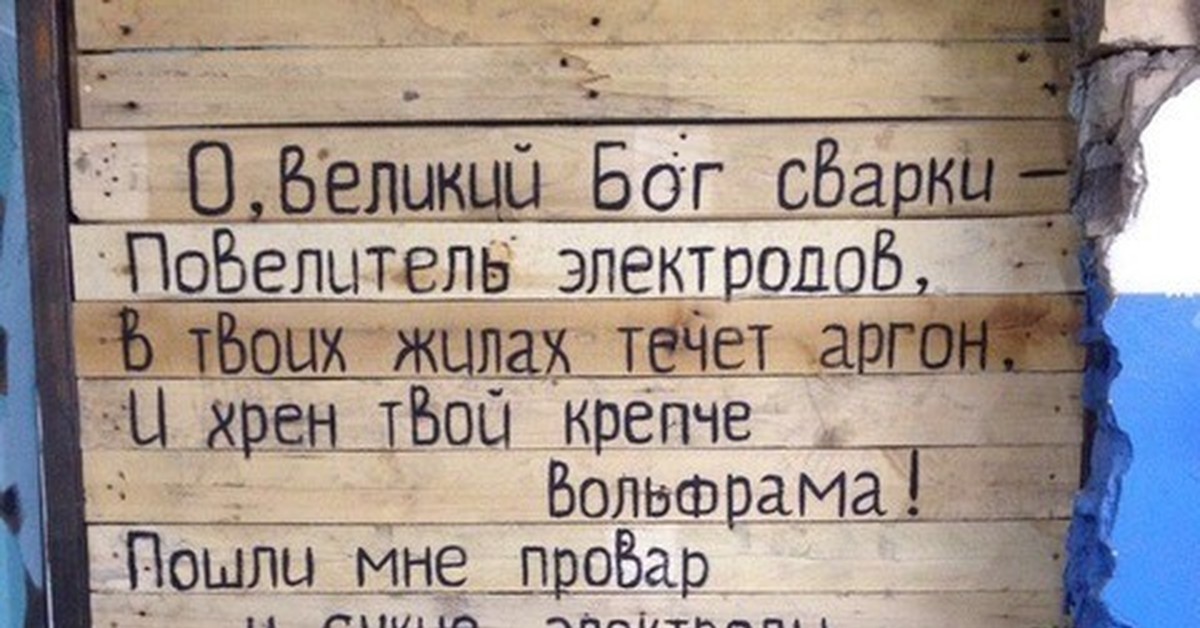 О, великий Бог сварки —
Повелитель электродов,
в твоих жилах течет аргон.
И хрен твой крепче
Вольфрама!
Пошли мне провар
и сухие электроды